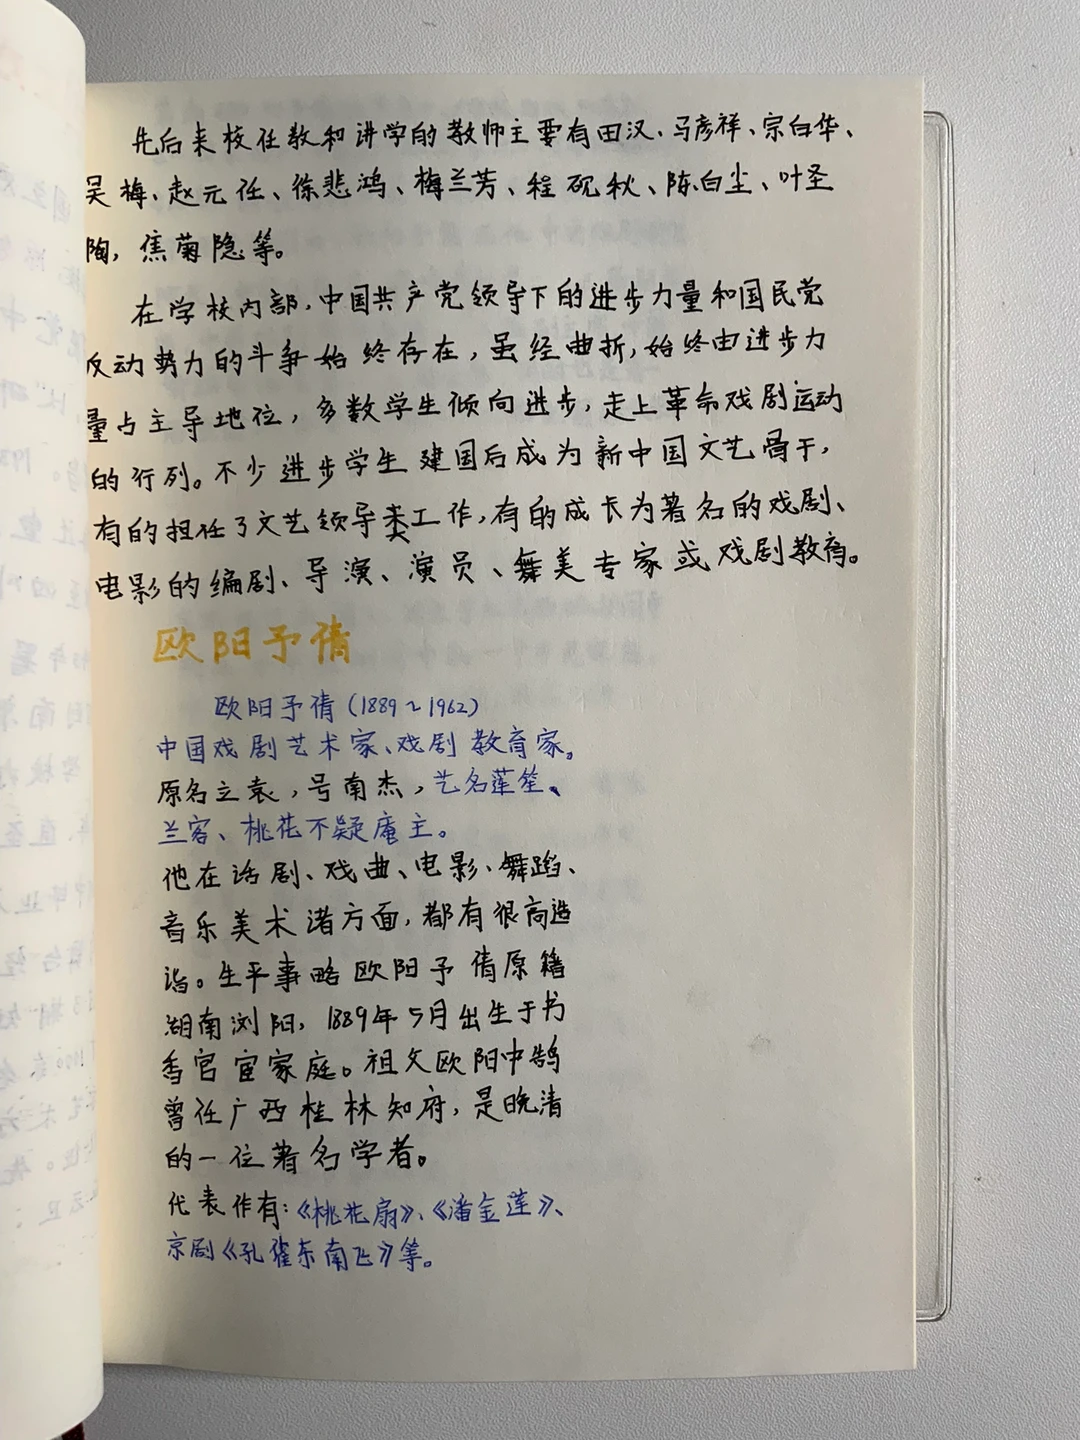 先后来校任教和讲学的教师主要有田汉、马彦祥、宗白华、
吴梅、赵元任、徐悲鸿、梅兰芳、程砚秋、陈白尘、叶圣
陶，焦菊隐等。
在学校内部，中国共产党领导下的进步力量和国民党
反动势力的斗争始终存在，虽经曲折，始终由进步力
量占主导地位，多数学生倾向进步，走上革命戏剧运动
的行列。不少进步学生建国后成为新中国文艺骨干，
有的担任了文艺领导类工作，有的成长为著名的戏剧、
电影的编剧、导演、演员、舞美专家或戏剧教育。
欧阳予倩
欧阳予倩（1889～1962）
中国戏剧艺术家、戏剧教育家。
原名立袁，号南杰，艺名莲笙、
兰客、桃花不疑庵主。
他在话剧、戏曲、电影、舞蹈、
音乐美术诸方面，都有很高造
诣。生平事略欧阳予倩原籍
湖南浏阳，1889年5月出生于书
香官宦家庭。祖父欧阳中鹄
曾任广西桂林知府，是晚清
的一位著名学者。
代表作有：《桃花扇》、《潘金莲》、
京剧《孔雀东南飞》等。